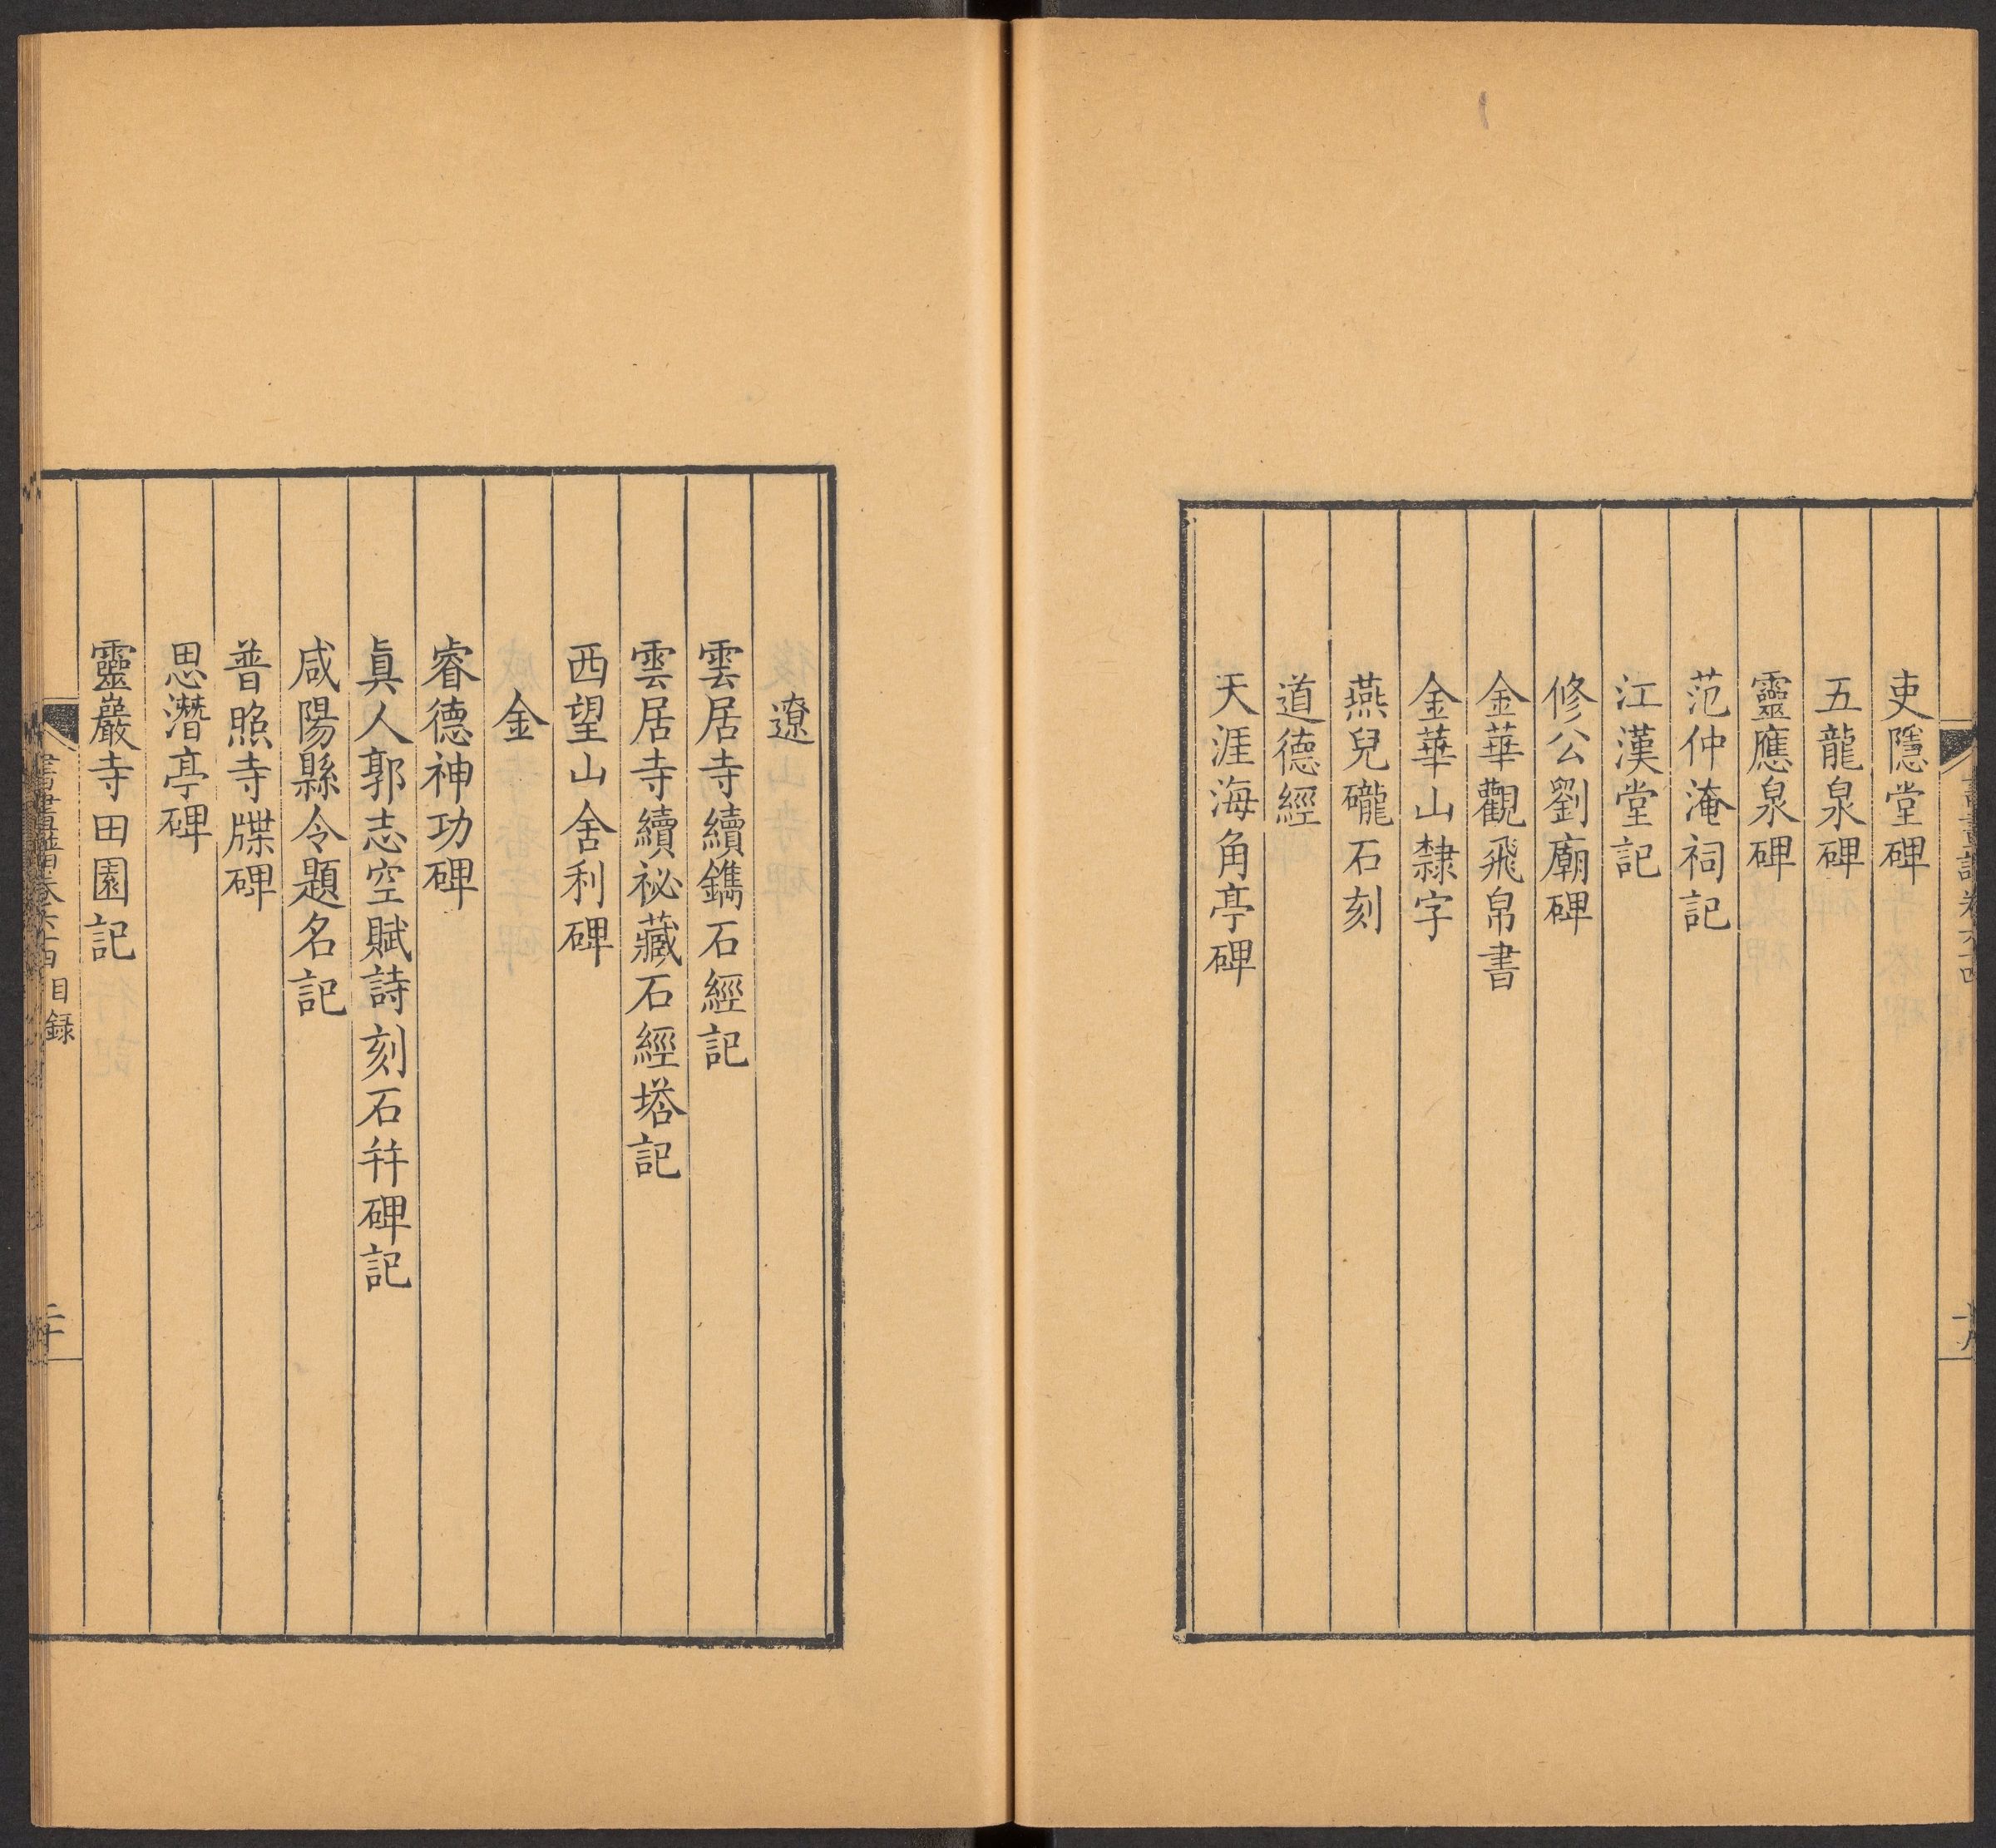 吏隱堂碑
五龍泉碑
靈應泉碑
范仲淹祠記
江漢堂記
修公劉廟碑
金華觀飛帛書
金華山隸字
燕兒礲石刻
道德經
天涯海角亭碑
遼
雲居寺續鐫石經記
雲居寺續祕藏石經塔記
西望山舍利碑
金
睿德神功碑
眞人郭志空賦詩刻石幷碑記
咸陽縣令題名記
普照寺牒碑
思潛亭碑
靈巖寺田園記
書畫譜卷六十四目錄
二十